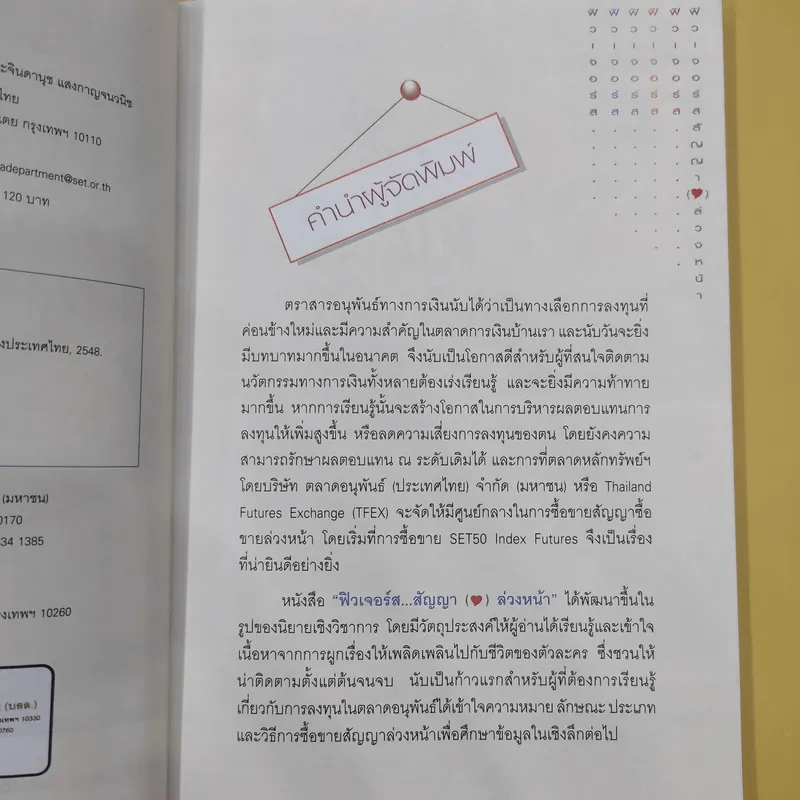 ะจินดานุช แสงกาญจนวนิช
ไทย
เตย กรุงเทพฯ 10110
adepartment@set.or.th
120 บาท
งประเทศไทย, 2548.
(มหาชน)
0170
34 1385
งเทพฯ 10260
(บลด.)
เทพฯ 10330
0760
ฟิวเจอร์ส ฟิวเจอร์ส ฟิวเจอร์ส ฟิวเจอร์ส ฟิวเจอร์ส ฟิวเจอร์ส...สัญญา(♥)ล่วงหน้า
คำนำผู้จัดพิมพ์
ตราสารอนุพันธ์ทางการเงินนับได้ว่าเป็นทางเลือกการลงทุนที่
ค่อนข้างใหม่และมีความสำคัญในตลาดการเงินบ้านเรา และนับวันจะยิ่ง
มีบทบาทมากขึ้นในอนาคต จึงนับเป็นโอกาสดีสำหรับผู้ที่สนใจติดตาม
นวัตกรรมทางการเงินทั้งหลายต้องเร่งเรียนรู้ และจะยิ่งมีความท้าทาย
มากขึ้น หากการเรียนรู้นั้นจะสร้างโอกาสในการบริหารผลตอบแทนการ
ลงทุนให้เพิ่มสูงขึ้น หรือลดความเสี่ยงการลงทุนของตน โดยยังคงความ
สามารถรักษาผลตอบแทน ณ ระดับเดิมได้ และการที่ตลาดหลักทรัพย์ฯ
โดยบริษัท ตลาดอนุพันธ์ (ประเทศไทย) จำกัด (มหาชน) หรือ Thailand
Futures Exchange (TFEX) จะจัดให้มีศูนย์กลางในการซื้อขายสัญญาซื้อ
ขายล่วงหน้า โดยเริ่มที่การซื้อขาย SET50 Index Futures จึงเป็นเรื่อง
ที่น่ายินดีอย่างยิ่ง
หนังสือ “ฟิวเจอร์ส...สัญญา (♥) ล่วงหน้า” ได้พัฒนาขึ้นใน
รูปของนิยายเชิงวิชาการ โดยมีวัตถุประสงค์ให้ผู้อ่านได้เรียนรู้และเข้าใจ
เนื้อหาจากการผูกเรื่องให้เพลิดเพลินไปกับชีวิตของตัวละคร ซึ่งชวนให้
น่าติดตามตั้งแต่ต้นจนจบ นับเป็นก้าวแรกสำหรับผู้ที่ต้องการเรียนรู้
เกี่ยวกับการลงทุนในตลาดอนุพันธ์ได้เข้าใจความหมาย ลักษณะ ประเภท
และวิธีการซื้อขายสัญญาล่วงหน้าเพื่อศึกษาข้อมูลในเชิงลึกต่อไป